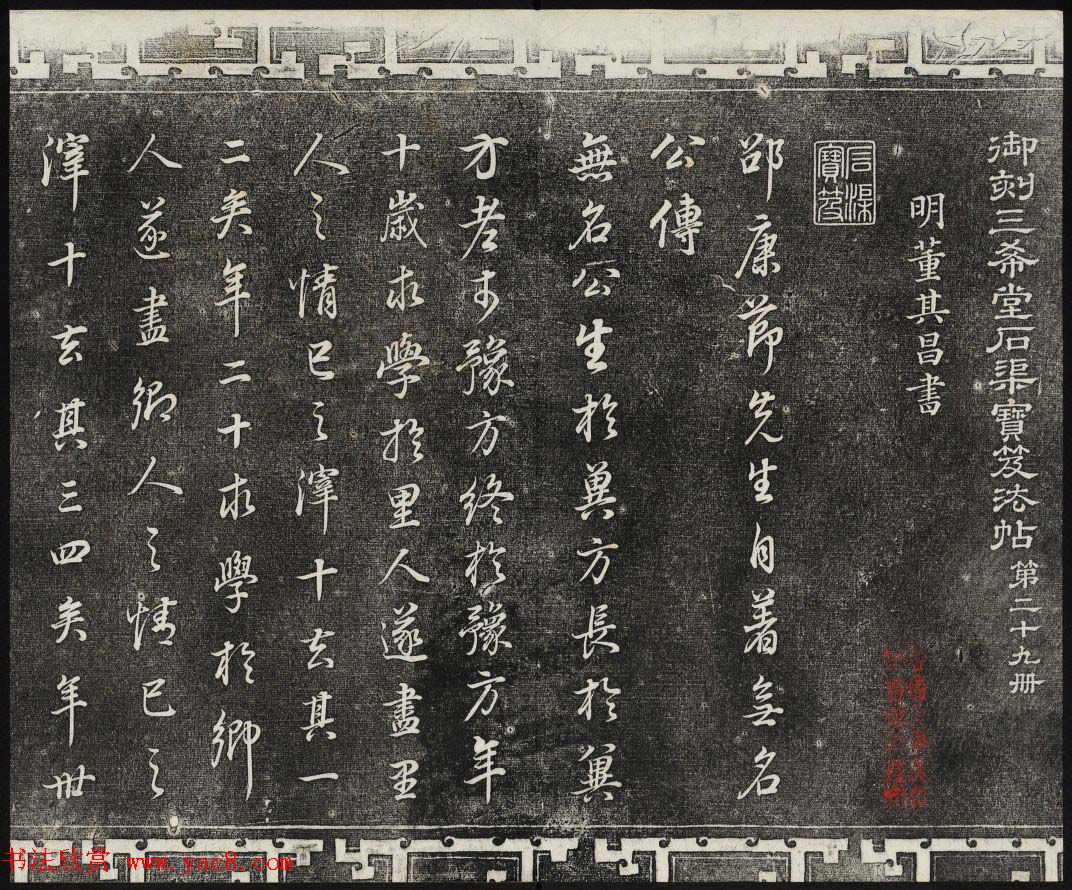 御刻三希堂石渠寶笈法帖第二十九册
明董其昌書
石渠寶笈
邵康節先生自著無名
公傳
無名公生於冀方長於冀
方老於豫方終於豫方年
十歲求學於里人遂盡里
人之情己之滓十去其一
二矣年二十求學於鄉
人遂盡鄉人之情己之
滓十去其三四矣年卅
书法欣赏 www.yac8.com